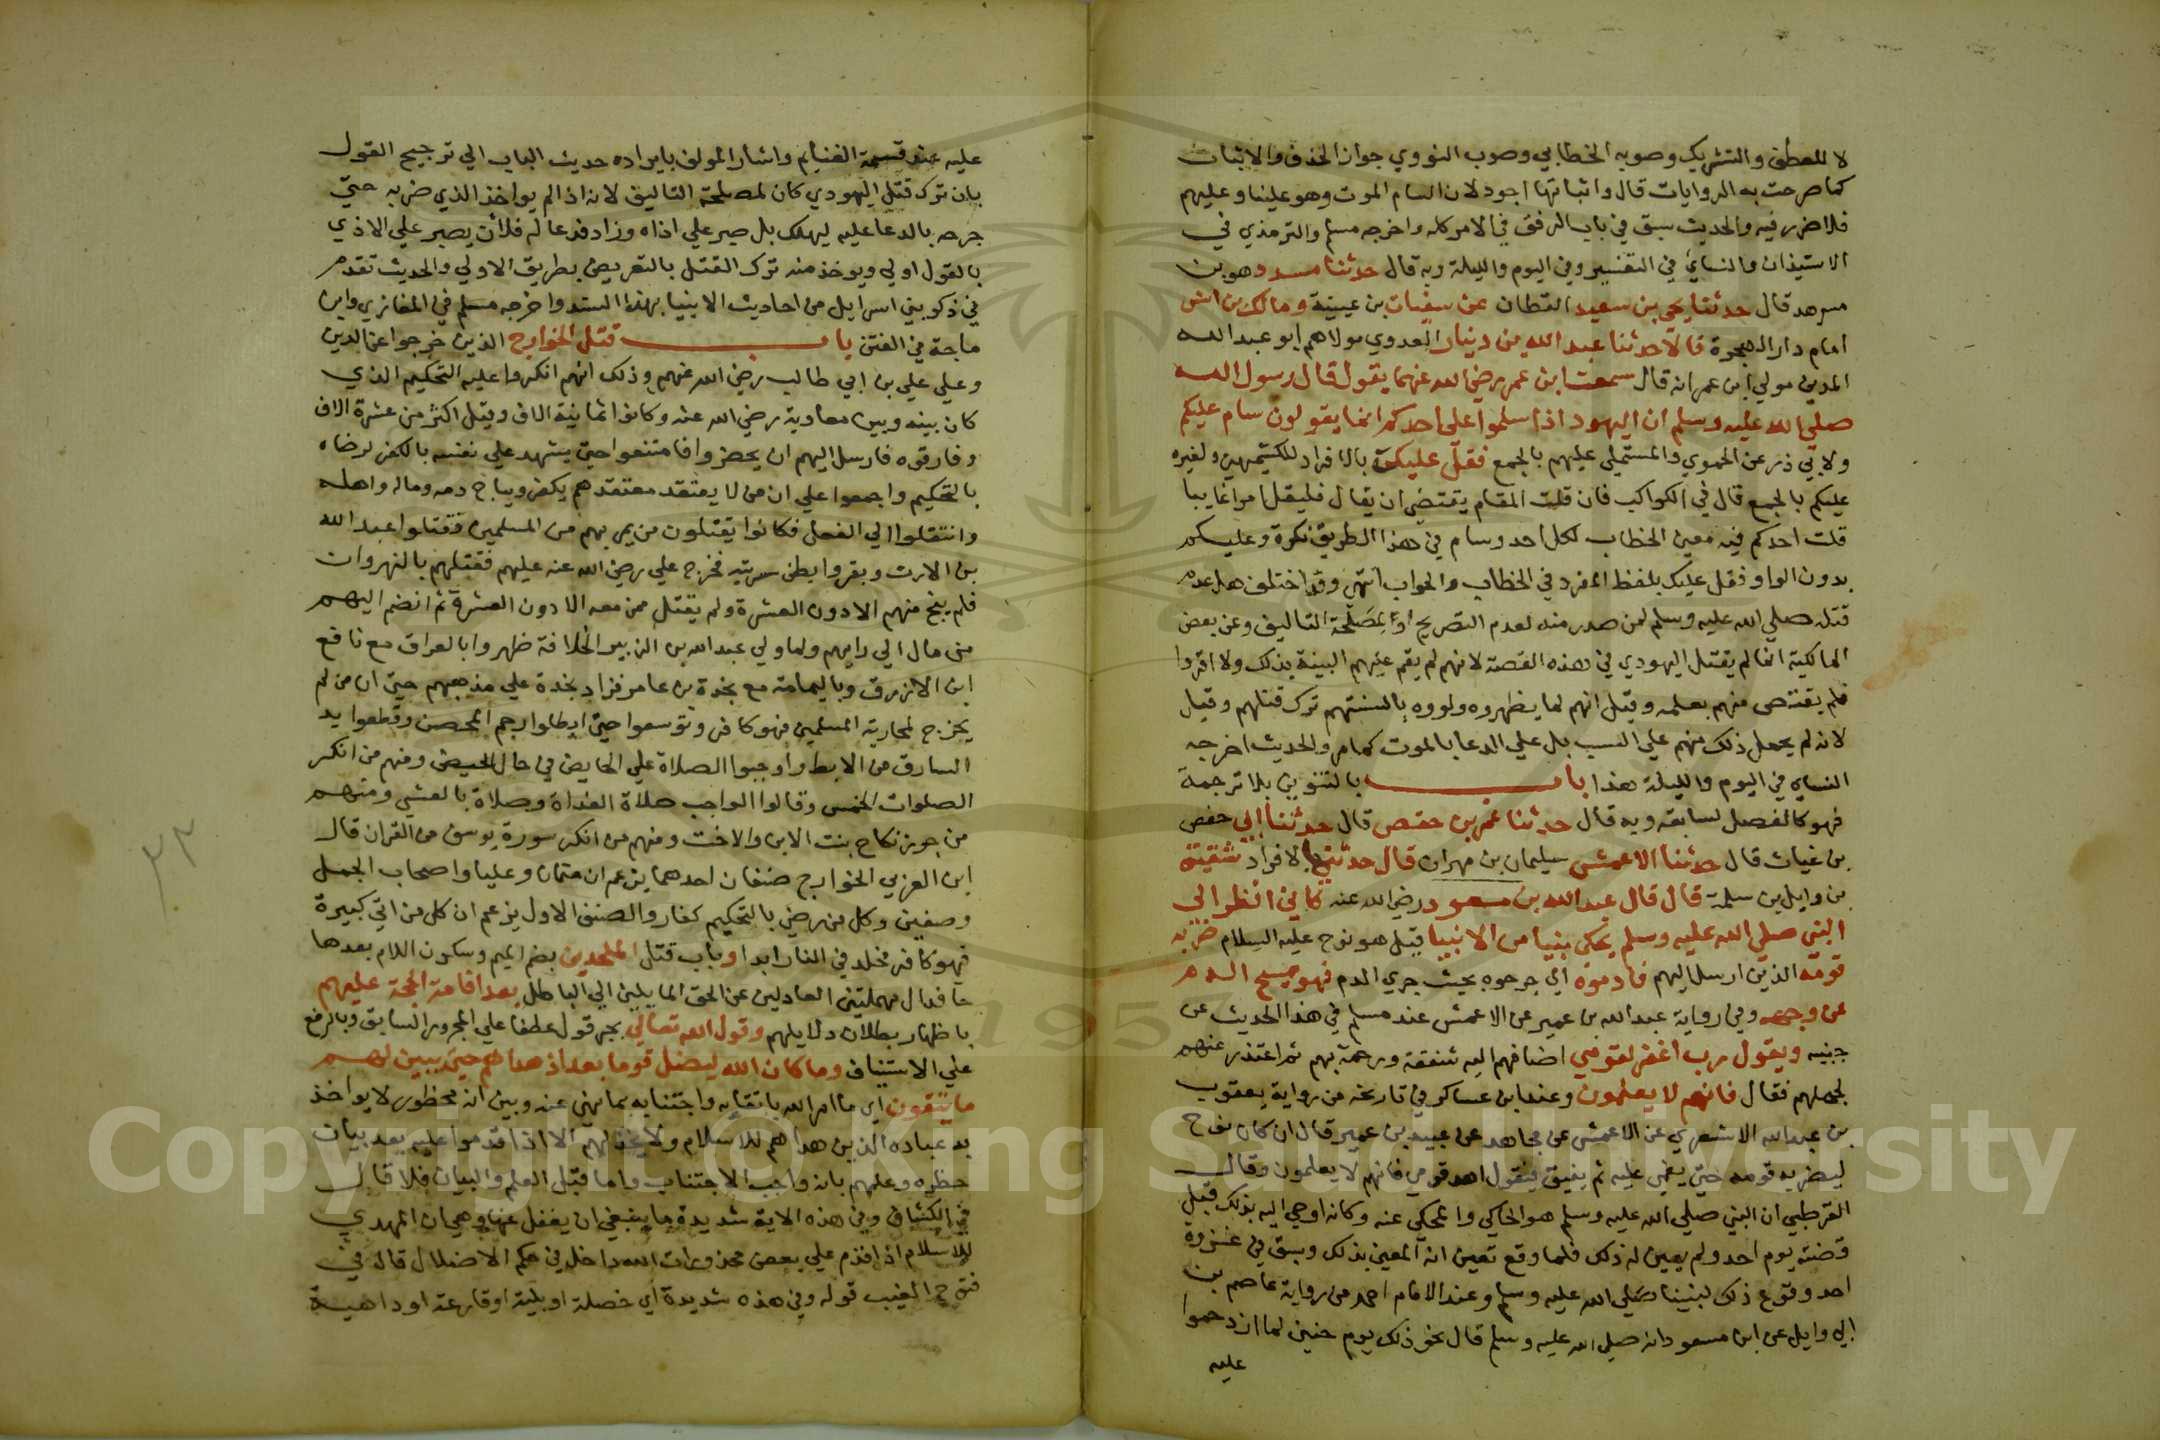 لا للعطف والتشريك وصوبه الخطابي وصوب النووي جواز الحذف والاثبات
كما صرحت به الروايات قال واثباتها اجود لان السام الموت وهو علينا وعليهم
فلا ضرر فيه والحديث سبق في باب الرفق في الامر كله واخرجه مسلم والترمذي في
الاستيذان والنساي في التفسير وفي اليوم والليلة وبه قال حدثنا مسدد هو بن
مسرهد قال حدثنا يحيى بن سعيد القطان عن سفيان بن عيينة ومالك بن انس
امام دار الهجرة قالا حدثنا عبد الله بن دينار العدوي مولاهم ابو عبد الله
المدين مولي ابن عمر انه قال سمعت ابن عمر رضي الله عنهما يقول قال رسول الله
صلي الله عليه وسلم ان اليهود اذا سلموا على احدكم انما يقولون سام عليكم
ولابي ذر عن الحموي والمستملي عليهم بالجمع فقل عليك بالافراد للكشميهني ولغيره
عليكم بالجمع قال في الكواكب فان قلت المقام يقتضي ان يقال فليقل امرا غايبا
قلت احدكم فيه معين الخطاب لكل احد وسام في هذا الطريق نكرة وعليكم
بدون الواو فقل عليك بلفظ المفرد في الخطاب والجواب انتهى وقد اختلف هل عدم
قتله صلي الله عليه وسلم لمن صدر منه لعدم التصريح او لمصلحة التاليف وعن بعض
المالكية انما لم يقتل اليهودي في هذه القصة لانهم لم يقم عليهم البينة بذلك ولا اقروا
فلم يقتص منهم بعلمه وقيل انهم لما يظهروه ولووه بالسنتهم ترك قتلهم وقيل
لانه لم يحمل ذلك منهم علي السب بل علي الدعا بالموت كما مر والحديث اخرجه
النساي في اليوم والليلة هذا باب بالتنوين بلا ترجمة
فهو كالفصل لسابقه وبه قال حدثنا عمر بن حفص قال حدثنا ابي حفص
بن غياث قال حدثنا الاعمش سليمان بن مهران قال حدثني بالافراد شقيق
بن وايل بن سلمة قال قال عبد الله بن مسعود رضي الله عنه كاني انظر الي
النبي صلي الله عليه وسلم يحكى نبيا من الانبيا قيل هو نوح عليه السلام ضربه
قومه الذين ارسل اليهم فادموه اي جرحوه بحيث جري الدم فهو يمسح الدم
عن وجهه وفي رواية عبد الله بن عمير عن الاعمش عند مسلم في هذا الحديث عن
جبينه ويقول رب اغفر لقومي اضافهم اليه شفقة ورحمة بهم ثم اعتذر عنهم
لجهلهم فقال فانهم لا يعلمون وعند ابن عساكر في تاريخه من رواية يعقوب
بن عبد الله الاشعري عن الاعمش عن مجاهد عن عبيد بن عمير قال ان كان نوح
ليضربه قومه حتى يغمى عليه ثم يفيق فيقول اهد قومي فانهم لا يعلمون وقال
القرطبي ان النبي صلي الله عليه وسلم هو الحاكي والمحكي عنه وكانه اوحي اليه بذلك قبل
قضية يوم احد ولم يعين له ذلك فلما وقع تعين انه المعين بذلك وسبق في غزوة
احد وقوع ذلك لنبينا صلي الله عليه وسلم وعند الامام احمد من رواية عاصم بن
ابي وايل عن ابن مسعود انه صلي الله عليه وسلم قال نحو ذلك يوم حنين لما ازدحموا
عليه
عليه عند قسمة الغنايم واشار المولف بايراده حديث الباب الي ترجيح القول
بان ترك قتل اليهودي كان لمصلحة التاليف لانه اذا لم يواخذ الذي ضربه حتي
جرحه بالدعا عليه ليهلك بل صبر علي اذاه وزاد فدعا له فلان يصبر علي الاذي
بالقول اولي ويوخذ منه ترك القتل بالتعريض بطريق الاولي والحديث تقدم
في ذكر بني اسرايل من احاديث الانبيا بهذا السند واخرجه مسلم في المغازي وابن
ماجة في الفتن باب قتل الخوارج الذين خرجوا عن الدين
وعلي علي بن ابي طالب رضي الله عنهم وذلك انهم انكروا عليه التحكيم الذي
كان بينه وبين معاوية رضي الله عنه وكانوا ثمانية الاف وقيل اكثر من عشرة الاف
وفارقوه فارسل اليهم ان يحضروا فامتنعوا حتى يشهد علي نفسه بالكفر لرضاه
بالتحكيم واجمعوا علي ان من لا يعتقد معتقدهم يكفر ويباح دمه وماله واهله
وانتقلوا الي الفعل فكانوا يقتلون من يمر بهم من المسلمين فقتلوا عبد الله
بن الارت وبقروا بطن سريته فخرج علي رضي الله عنه عليهم فقتلهم بالنهروان
فلم ينج منهم الا دون العشرة ولم يقتل ممن معه الا دون العشرة ثم انضم اليهم
من مال الي رايهم ولما ولي عبد الله بن الزبير الخلافة ظهروا بالعراق مع نافع
ابن الازرق وباليمامة مع نجدة بن عامر فزاد نجدة علي مذهبهم حتى ان من لم
يخرج لمحاربة المسلمين فهو كافر وتوسعوا حتى ابطلوا رجم المحصن وقطعوا يد
السارق من الابط واوجبوا الصلاة علي الحايض في حال الحيض ومنهم من انكر
الصلوات الخمس وقالوا الواجب صلاة الغداة وصلاة بالعشي ومنهم
من جوز نكاح بنت الابن والاخت ومنهم من انكر سورة يوسف من القران قال
ابن العربي الخوارج صنفان احدهما يزعم ان عثمان وعليا واصحاب الجمل
وصفين وكل من رضي بالتحكيم كفار والصنف الاول يزعم ان كل من اتي كبيرة
فهو كافر مخلد في النار ابدا وباب قتل الملحدين بضم الميم وسكون اللام بعدها
حا فدال مهملتين العادلين عن الحق المايلين الي الباطل بعد اقامة الحجة عليهم
باظهار بطلان دلايلهم وقول الله تعالي بجر قول عطفا علي المجرور السابق وبالرفع
علي الاستيناف وما كان الله ليضل قوما بعد اذ هداهم حتى يبين لهم
ما يتقون اي ما امر الله باتقايه واجتنابه مما نهي عنه وبين انه محظور لا يواخذ
به عباده الذين هداهم للاسلام ولا يخذلهم الا اذا اقدموا عليه بعد بيان
حظره وعلمهم بانه واجب الاجتناب واما قبل العلم والبيان فلا قال
في الكشاف وفي هذه الاية شديدة ما ينبغي ان يغفل عنها وهي ان المهدي
للاسلام اذا اقدم علي بعض محذورات الله داخل في حكم الاضلال قال في
فتوح الغيب قوله وفي هذه شديدة اي خصلة او بلية او قارعة او داهية
٢٣
Copyright © King Saud University
1957